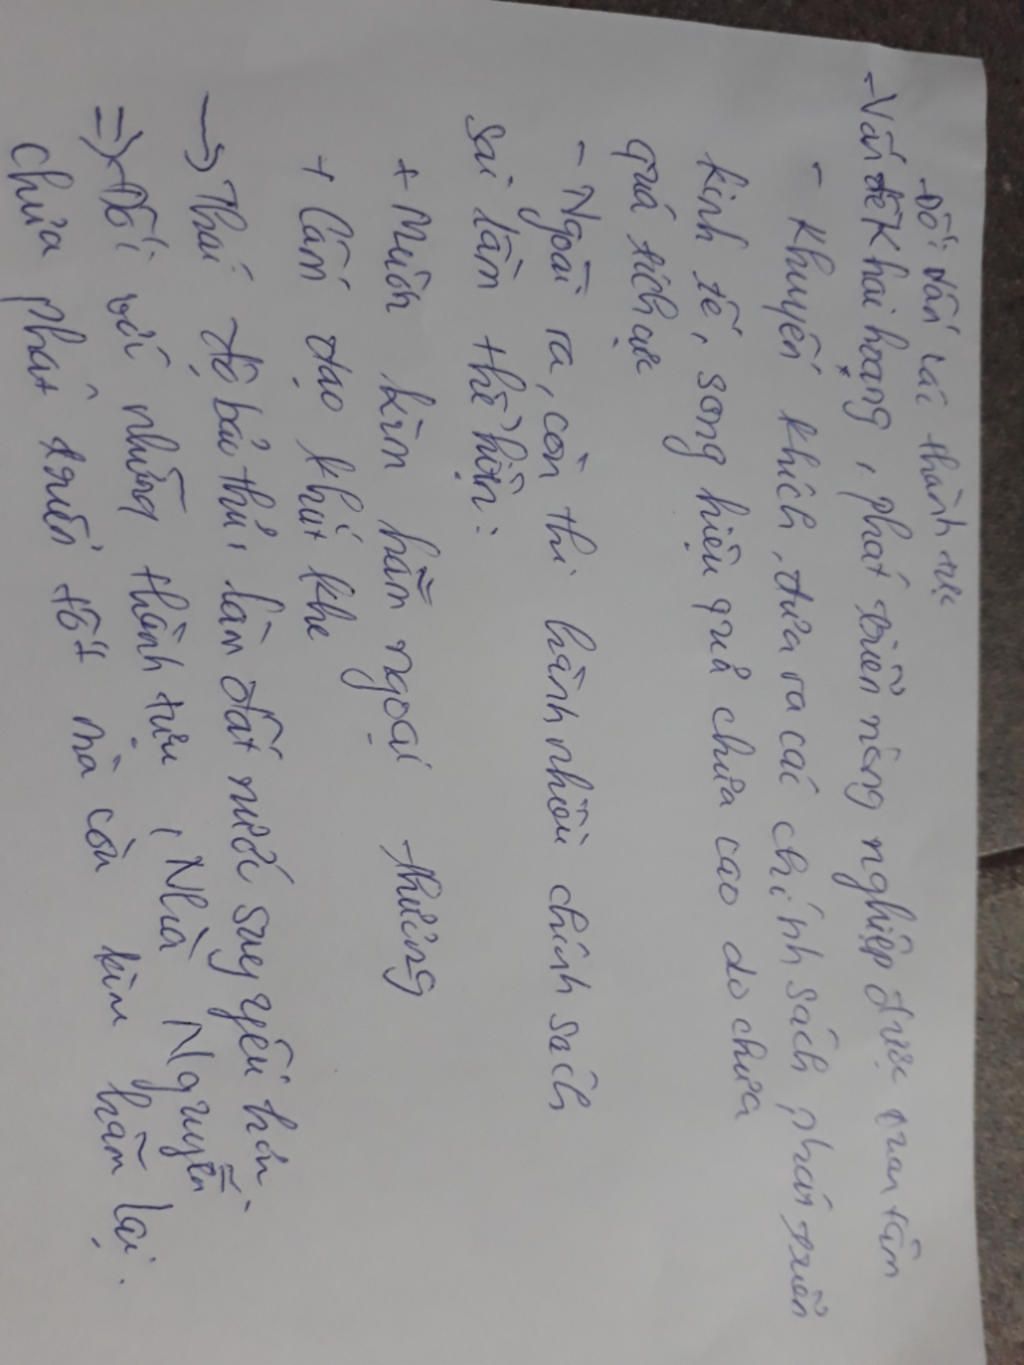 Đối với các thành tựu
- Vấn đề khai hoang, phát triển nông nghiệp được quan tâm
- Khuyến khích, đưa ra các chính sách phát triển
kinh tế, song hiệu quả chưa cao do chưa
quá tích cực
- Ngoài ra, còn thi hành nhiều chính sách
sai lầm thể hiện:
+ Muốn kìm hãm ngoại thương
+ Cấm đạo khắt khe
→ Thái độ bảo thủ, làm đất nước suy yếu hơn
=> Đối với những thành tựu, Nhà Nguyễn
chưa phát triển tốt mà còn kìm hãm lại.